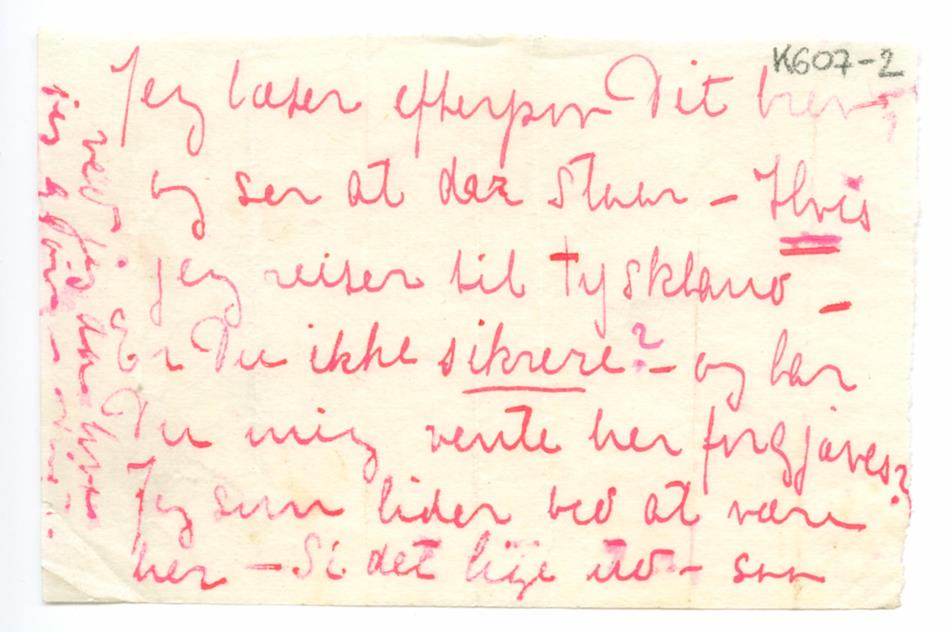 K607-2
Jeg læser efterpaa Dit brev
og ser at der staar – Hvis
jeg reiser til Tyskland –
Er Du ikke sikrere? – og lar
Du mig vente her forgjæves?
Jeg som lider ved at være
her – Si det lige ud – saa
ved jeg da hva
jeg